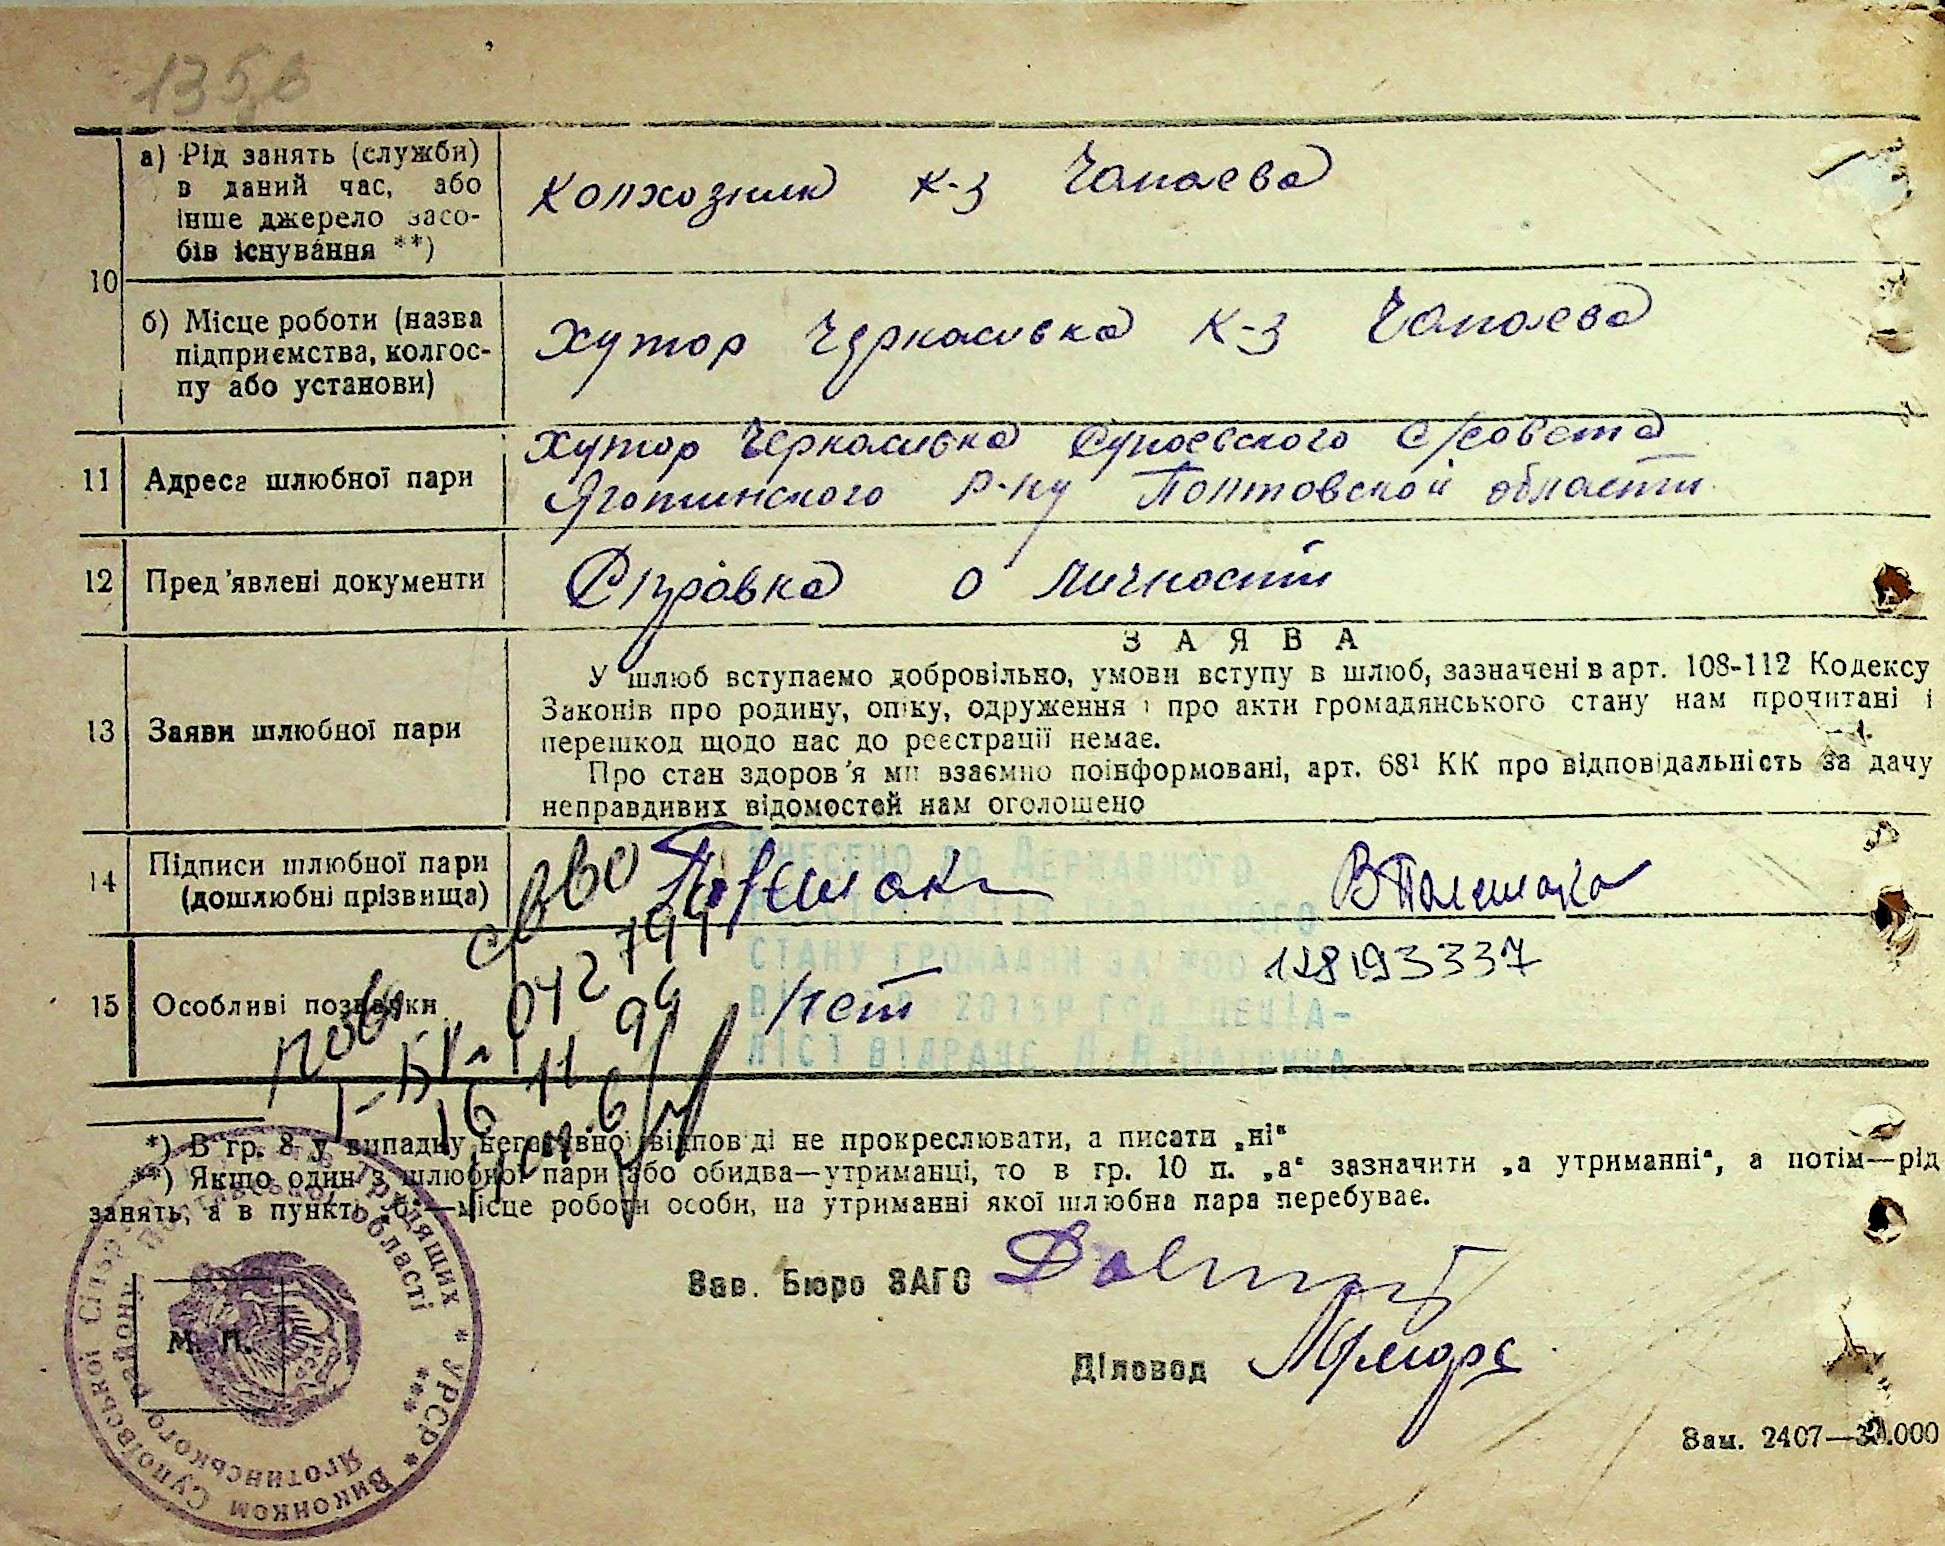 135
10
а) Рід занять (служби)
в даний час, або
інше джерело засо-
бів існування **)
колхозник к-з Чапаева
б) Місце роботи (назва
підприємства, колгос-
пу або установи)
Хутор Черкасивка к-з Чапаева
11 Адреса шлюбної пари
Хутор Черкасивка Супоевского с/совета
Яготинского р-ну Полтовской области
12 Пред'явлені документи
Справка о личности
13 Заяви шлюбної пари
ЗАЯВА
У шлюб вступаємо добровільно, умови вступу в шлюб, зазначені в арт. 108-112 Кодексу
Законів про родину, опіку, одруження і про акти громадянського стану нам прочитані і
перешкод щодо нас до реєстрації немає.
Про стан здоров'я ми взаємно поінформовані, арт. 68¹ КК про відповідальність за дачу
неправдивих відомостей нам оголошено
14 Підписи шлюбної пари
(дошлюбні прізвища)
15 Особливі познаки
Нет
128193337
ВНЕСЕНО ДО ДЕРЖАВНОГО
СТАНУ ГРОМАДЯН ЗА
повт
І-БК
16 11 94
*) В гр. 8 у випадку негативної відповіді не прокреслювати, а писати „ні"
**) Якщо один з шлюбної пари або обидва—утриманці, то в гр. 10 п. „а" зазначити „а утриманні", а потім—рід
занять, а в пункті „б"—місце роботи особи, на утриманні якої шлюбна пара перебуває.
Зав. Бюро ЗАГС
Діловод
М. П.
Виконком Супоївської Сільр. трудящих * УРСР *
Яготинського району Полтавської області
Зам. 2407—